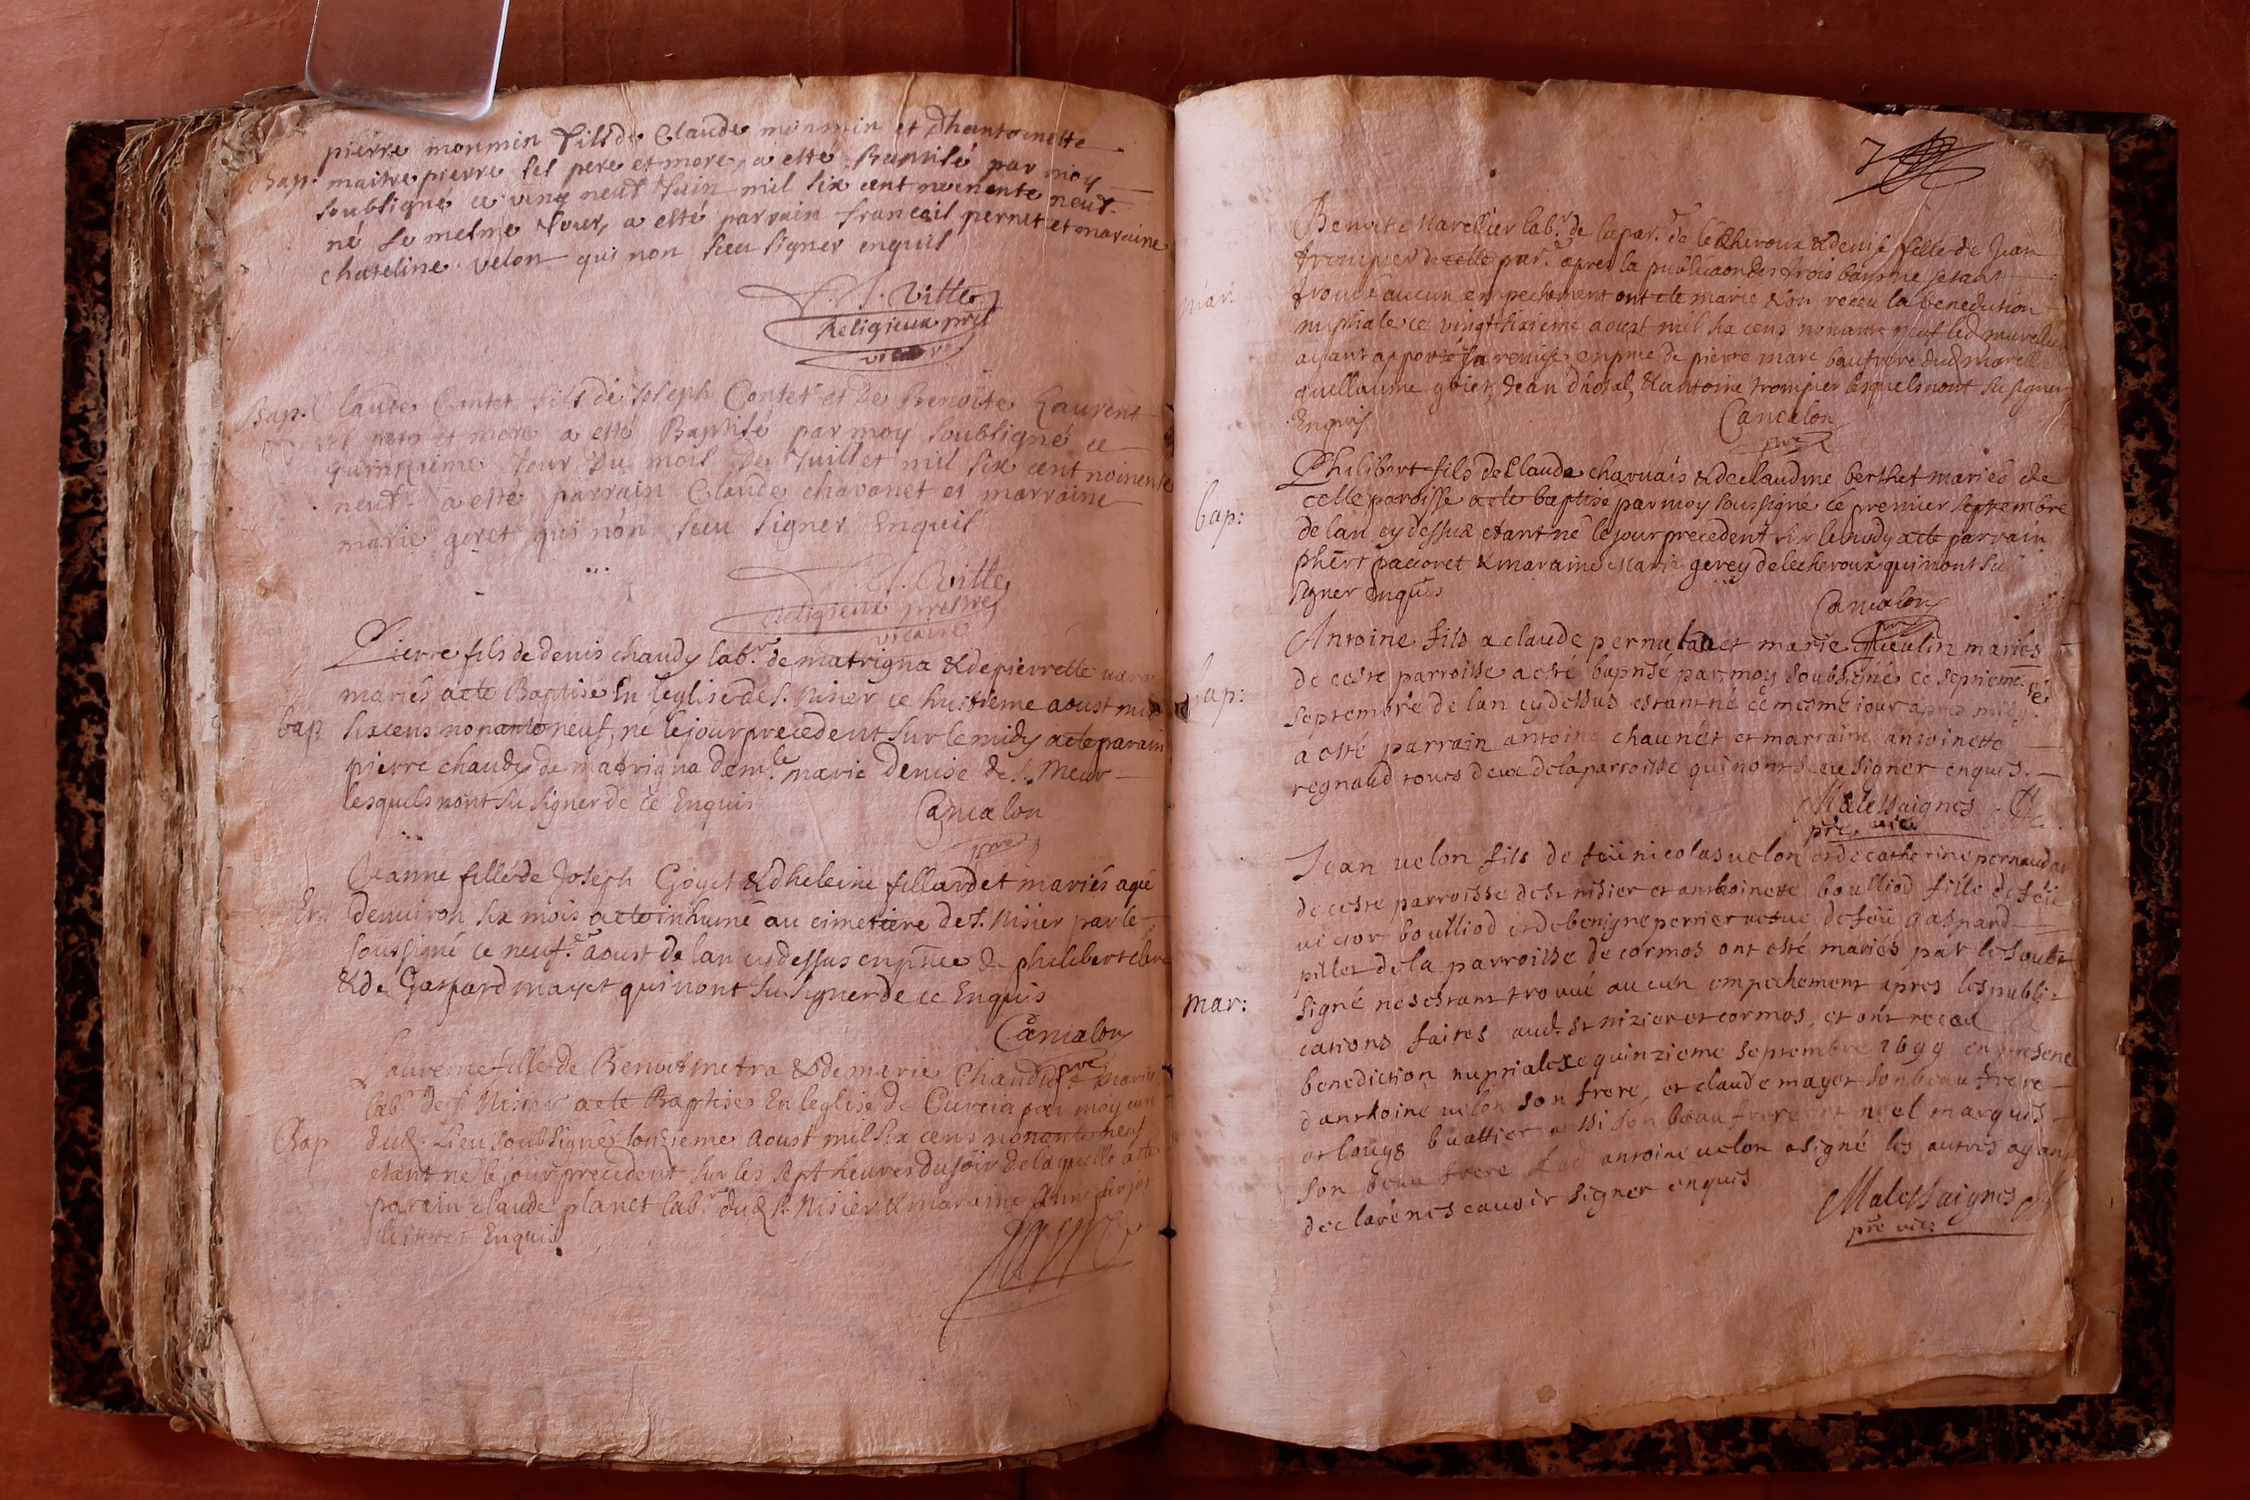 pierre monmin fils de Claude monmin et dhantoinette
bap. maitrepierre ses pere et mere, a esté Baptisé par moy
soubsigné ce vingt neuf Juin mil six cent nonente neuf
né le mesme Jour, a esté parrain francois pernet et maraine
chateline velon qui non sceu signer enquis
Ville
Religieux pres
vicaire
Bap. Claude Contet fils de Joseph Contet et de Benoite Laurent
pere et mere a esté Baptisé par moy soubsigné ce
quinzieme Jour du mois de Juillet mil six cent nonente
neuf a esté parrain Claude chavanet et marraine
marie geret qui non sceu signer Enqueis
Ville
Religieux prestre
vicaire
Pierre fils de denis chaudy labr. de matrigna & de pierrette
mariés a ete Baptisé En l'eglise de s. Nisier ce huitieme aoust mil
bap. sixcens nonante neuf, ne le jour precedent sur le midy a ete parain
pierre chaudy de matrigna damlle marie denise de s. Meur
lesquels nont su signer de ce Enquis
Cancalon
pre
Jeanne fille de Joseph Goyet & dheleine fillardet mariés agé
En. denuiron six mois a ete inhumé au cimetiere de s. Nisier par le
soussigné ce neuf.e aoust de lan cy dessus en pnce de philibert clerc
& de Gaspard mayet qui nont su signer de ce Enquis
Cancalon
pre
Laurence fille de Benoit metra & de marie Chaudet mariés
labrs de s. Nisier a ete Baptisée En leglise de Curcia par moy curé
Bap dud. Lieu soubsigné lonzieme Aoust mil six cens nonante neuf
etant né le jour precedent sur les sept heures du soir de laquelle a ete
parain claude planet labr. dud. s. Nisier & maraine Anne
illiteres Enquis
7
Benoit Marellier labr. de la par. de le Cheroux & denise fille de Jean
trompier de celle par. apres la publicaon des trois bans ne setant
mar: trouvé aucun empechement ont ete marié & on receu la benediction
nuptiale ce vingt sixieme aoust mil six cens nonante neuf led marellier
ayant apporté sa remise en pnce de pierre marc baufrere dud morell
guillaume goiet, Jean dhosal, & antoine trompier lesquels nont su signer
Enquis
Cancalon
pre
Philibert fils de Claude charuais & de claudine berthet mariés de
celle paroisse a ete baptisé par moy soussigné ce premier septembre
bap: de lan cy dessus etant né le jour precedent sur le midy a ete parrain
phert pacoret & maraine Marie gerey de lecheroux qui nont su
signer enquis
Cancalon
pre
Antoine fils a claude pernu et marie mariés
de ceste parroisse a esté baptisé par moy soubsigné ce septieme
bap: septembre de lan cy dessus estant né ce mesme iour apres midy
a esté parrain antoine chaunet et marraine antoinette
regnaud tous deux de la parroisse qui nont sceu signer enquis.
Malessaignes
pre vic
Jean uelon fils de feü nicolas uelon et de catherine pernaudat
de ceste parroisse de st nisier et anthoinette boulliod fille de feü
uictor boulliod et de benigne perrier vefue de feü gaspard
pillet de la parroisse de cormos ont esté mariés par le soub
mar: signé ne sestant trouué aucun empechement apres les publi=
cations faites aud. st nizier et cormos, et ont receu
benediction nuptiale ce quinzieme septembre 1699 en presence
danthoine uelon son frere, et claude mayet son beau frere
et louys buattier aussi son beau frere et noel marquis
son beau frere led antoine uelon a signé les autres ayant
declaré ne scauoir signer enquis
Malessaignes
pre vic: